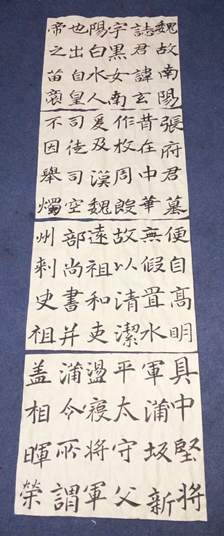 魏故南陽
誌君諱玄
字黑女南
陽白水人
也出自皇
帝之苗裔
張府君墓
昔在中華
作牧周殷
爰及漢魏
司徒司空
不因舉燭
便自高明
無假置水
故以清潔
遠祖和吏
部尚書并
州刺史祖
具中堅將
軍蒲坂新
平太守父
盪寇將軍
蒲令所謂
蓋相暉榮